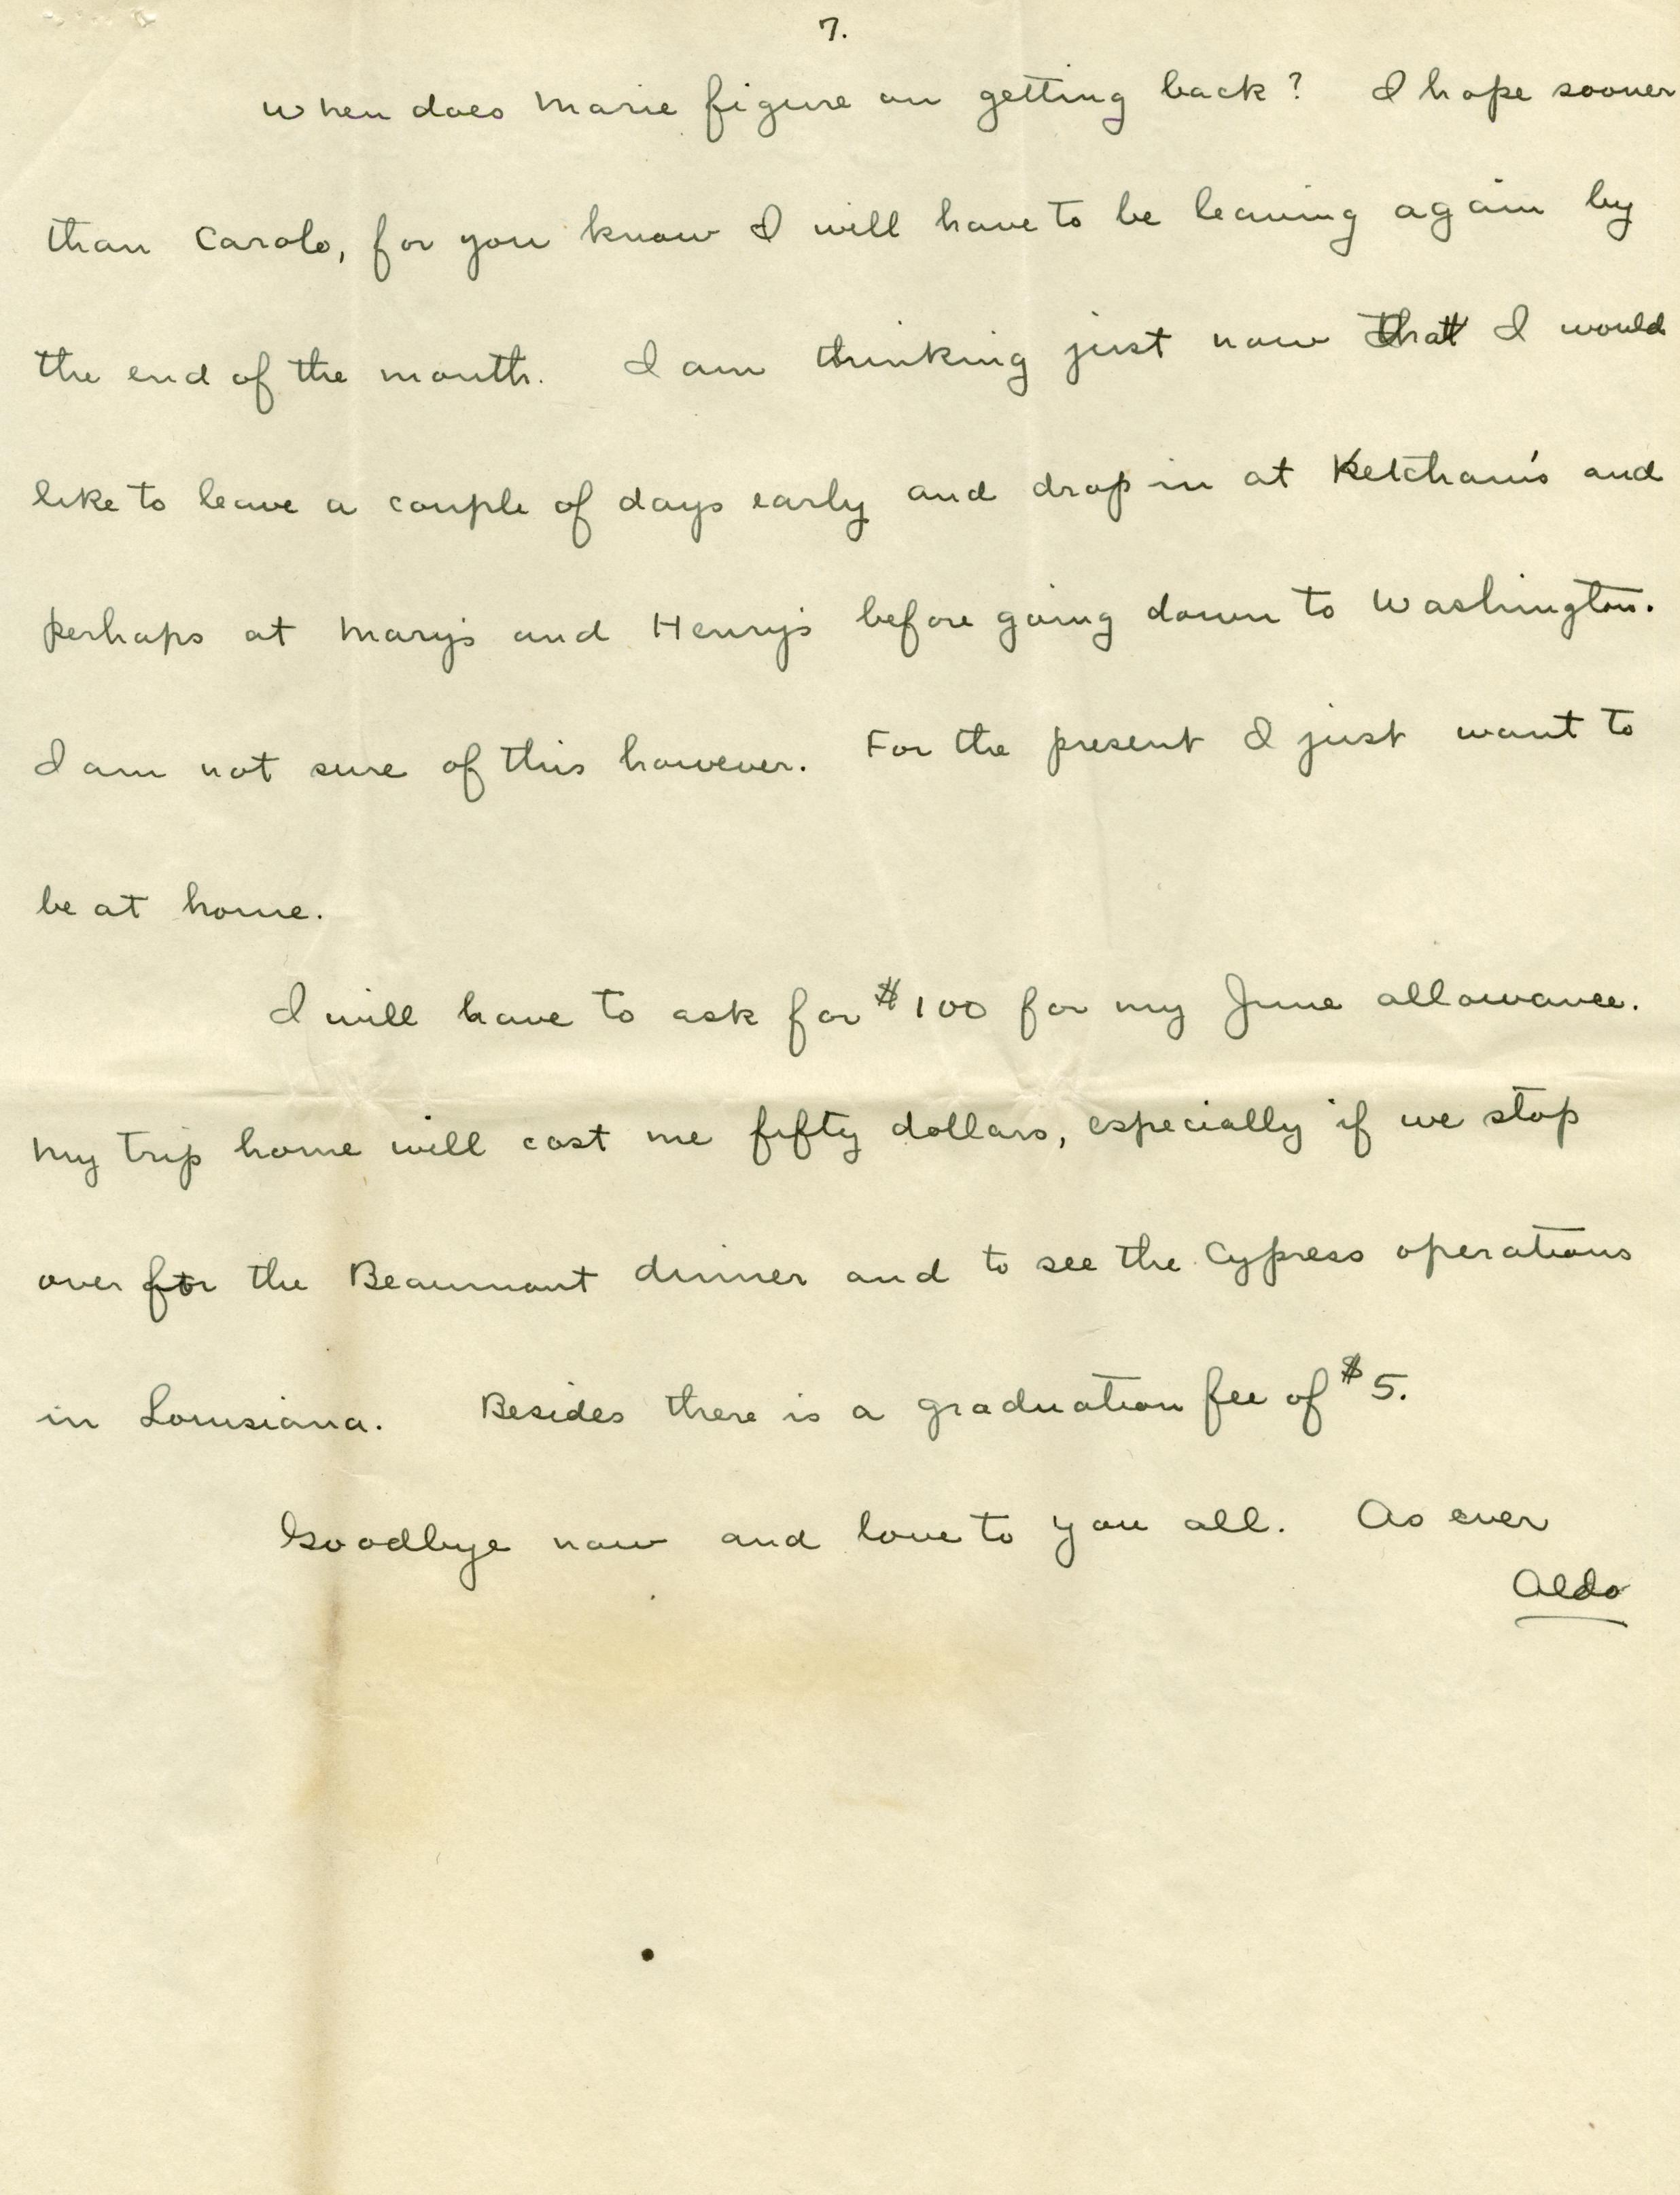 7.
When does Marie figure on getting back? I hope sooner
than Carolo, for you know I will have to be leaving again by
the end of the month. I am thinking just now that I would
like to leave a couple of days early and drop in at Ketcham's and
perhaps at Mary's and Henry's before going down to Washington.
I am not sure of this however. For the present I just want to
be at home.
I will have to ask for $100 for my June allowance.
My trip home will cost me fifty dollars, especially if we stop
over for the Beaumont dinner and to see the Cypress operations
in Louisiana. Besides there is a graduation fee of $5.
Goodbye now and love to you all. As ever
Aldo